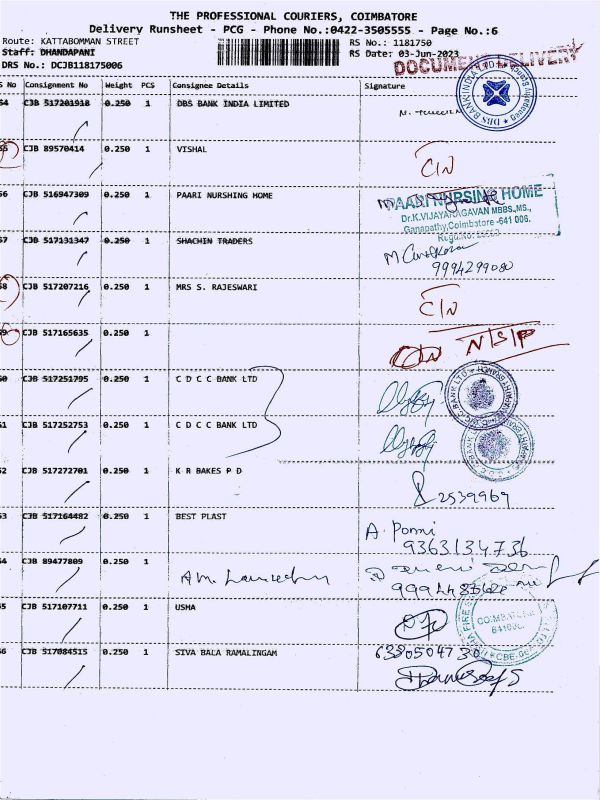 THE PROFESSIONAL COURIERS, COIMBATORE
Delivery Runsheet - PCG - Phone No.:0422-3505555 - Page No.:6
Route: KATTABOMMAN STREET RS No.: 1181750
Staff: DHANDAPANI RS Date: 03-Jun-2023
DRS No.: DCJB118175006 DOCUMENT DELIVERY
S No Consignment No Weight PCS Consignee Details Signature
54 CJB 517201918 0.250 1 DBS BANK INDIA LIMITED
DBS BANK INDIA LTD
55 CJB 89570414 0.250 1 VISHAL
C/N
56 CJB 516947309 0.250 1 PAARI NURSHING HOME
PAARI NURSING HOME
Dr.K.VIJAYARAGAVAN MBBS.,MS.,
Ganapathy,Coimbatore -641 006.
57 CJB 517131347 0.250 1 SHACHIN TRADERS
9994299080
58 CJB 517207216 0.250 1 MRS S. RAJESWARI
C/N
59 CJB 517165635 0.250 1
N/S/P
60 CJB 517251795 0.250 1 C D C C BANK LTD
61 CJB 517252753 0.250 1 C D C C BANK LTD
62 CJB 517272701 0.250 1 K R BAKES P D
2539969
63 CJB 517164482 0.250 1 BEST PLAST
A. Ponni
9363134736
64 CJB 89477809 0.250 1
65 CJB 517107711 0.250 1 USHA
COIMBATORE
66 CJB 517084515 0.250 1 SIVA BALA RAMALINGAM
6380504730